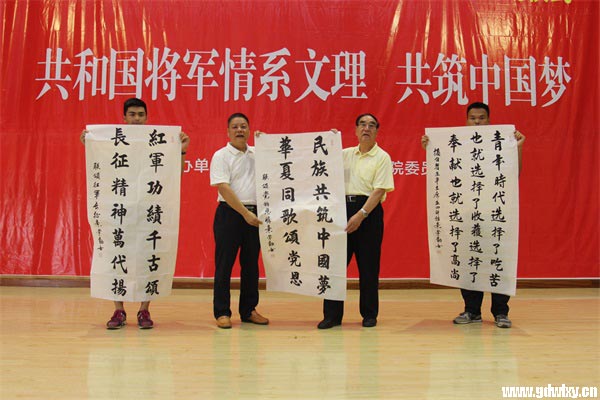 共和国将军情系文理 共筑中国梦
办单
院委员
紅軍功績千古頌
長征精神萬代揚
民族共筑中國夢
華夏同歌頌党恩
青年時代選擇了吃苦
也就選擇了收獲選擇了
奉献也就選擇了高尚
www.gdwlxy.cn